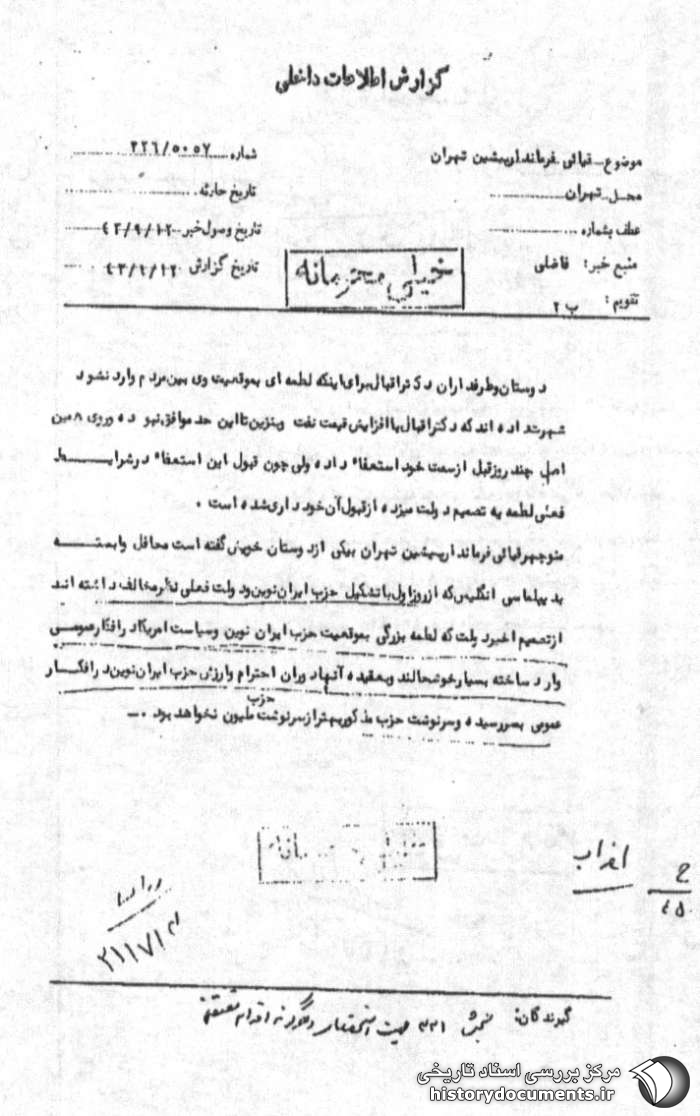 گزارش اطلاعات داخلی
موضوع ـ قیالی فرماندار پیشین تهران
شماره ۳۲۶/۵۰۵۷
محل ـ تهران
تاریخ حادثه
عطف بشماره
تاریخ وصول خبر ۴۳/۹/۱۲
منبع خبر: فاضلی
تاریخ گزارش
تقویم: ب ۲
خیلی محرمانه
دوستان و طرفداران دکتر اقبال برای اینکه لطمه ای بموقعیت وی بین مردم وارد نشود
شهرت داده اند که دکتر اقبال با افزایش قیمت نفت و بنزین تا این حد موافق نبوده و روی همین
اصل چند روز قبل از سمت خود استعفاء داده ولی چون قبول این استعفاء در شرایط
فعلی لطمه به تصمیم دولت میزده از قبول آن خودداری شده است .
منوچهر قیالی فرماندار پیشین تهران بیکی از دوستان خویش گفته است محافل وابسته
بدیپلماسی انگلیس که از روز اول با تشکیل حزب ایران نوین و دولت فعلی نظر مخالف داشته اند
از تصمیم اخیر دولت که لطمه بزرگی بموقعیت حزب ایران نوین و سیاست امریکا در افکار عمومی
وارد ساخته بسیار خوشحالند و بعقیده آنها دوران احترام و ارزش حزب ایران نوین در افکار
عمومی بسر رسیده و سرنوشت حزب مذکور بهتر از سرنوشت حزب ملیون نخواهد بود . ـ
احزاب
ح
۴۵
۲۱۱۷۱
گیرندگان: بخش ۳۲۱ جهت استحضار و هرگونه اقدام مقتضی
مرکز بررسی اسناد تاریخی
historydocuments.ir